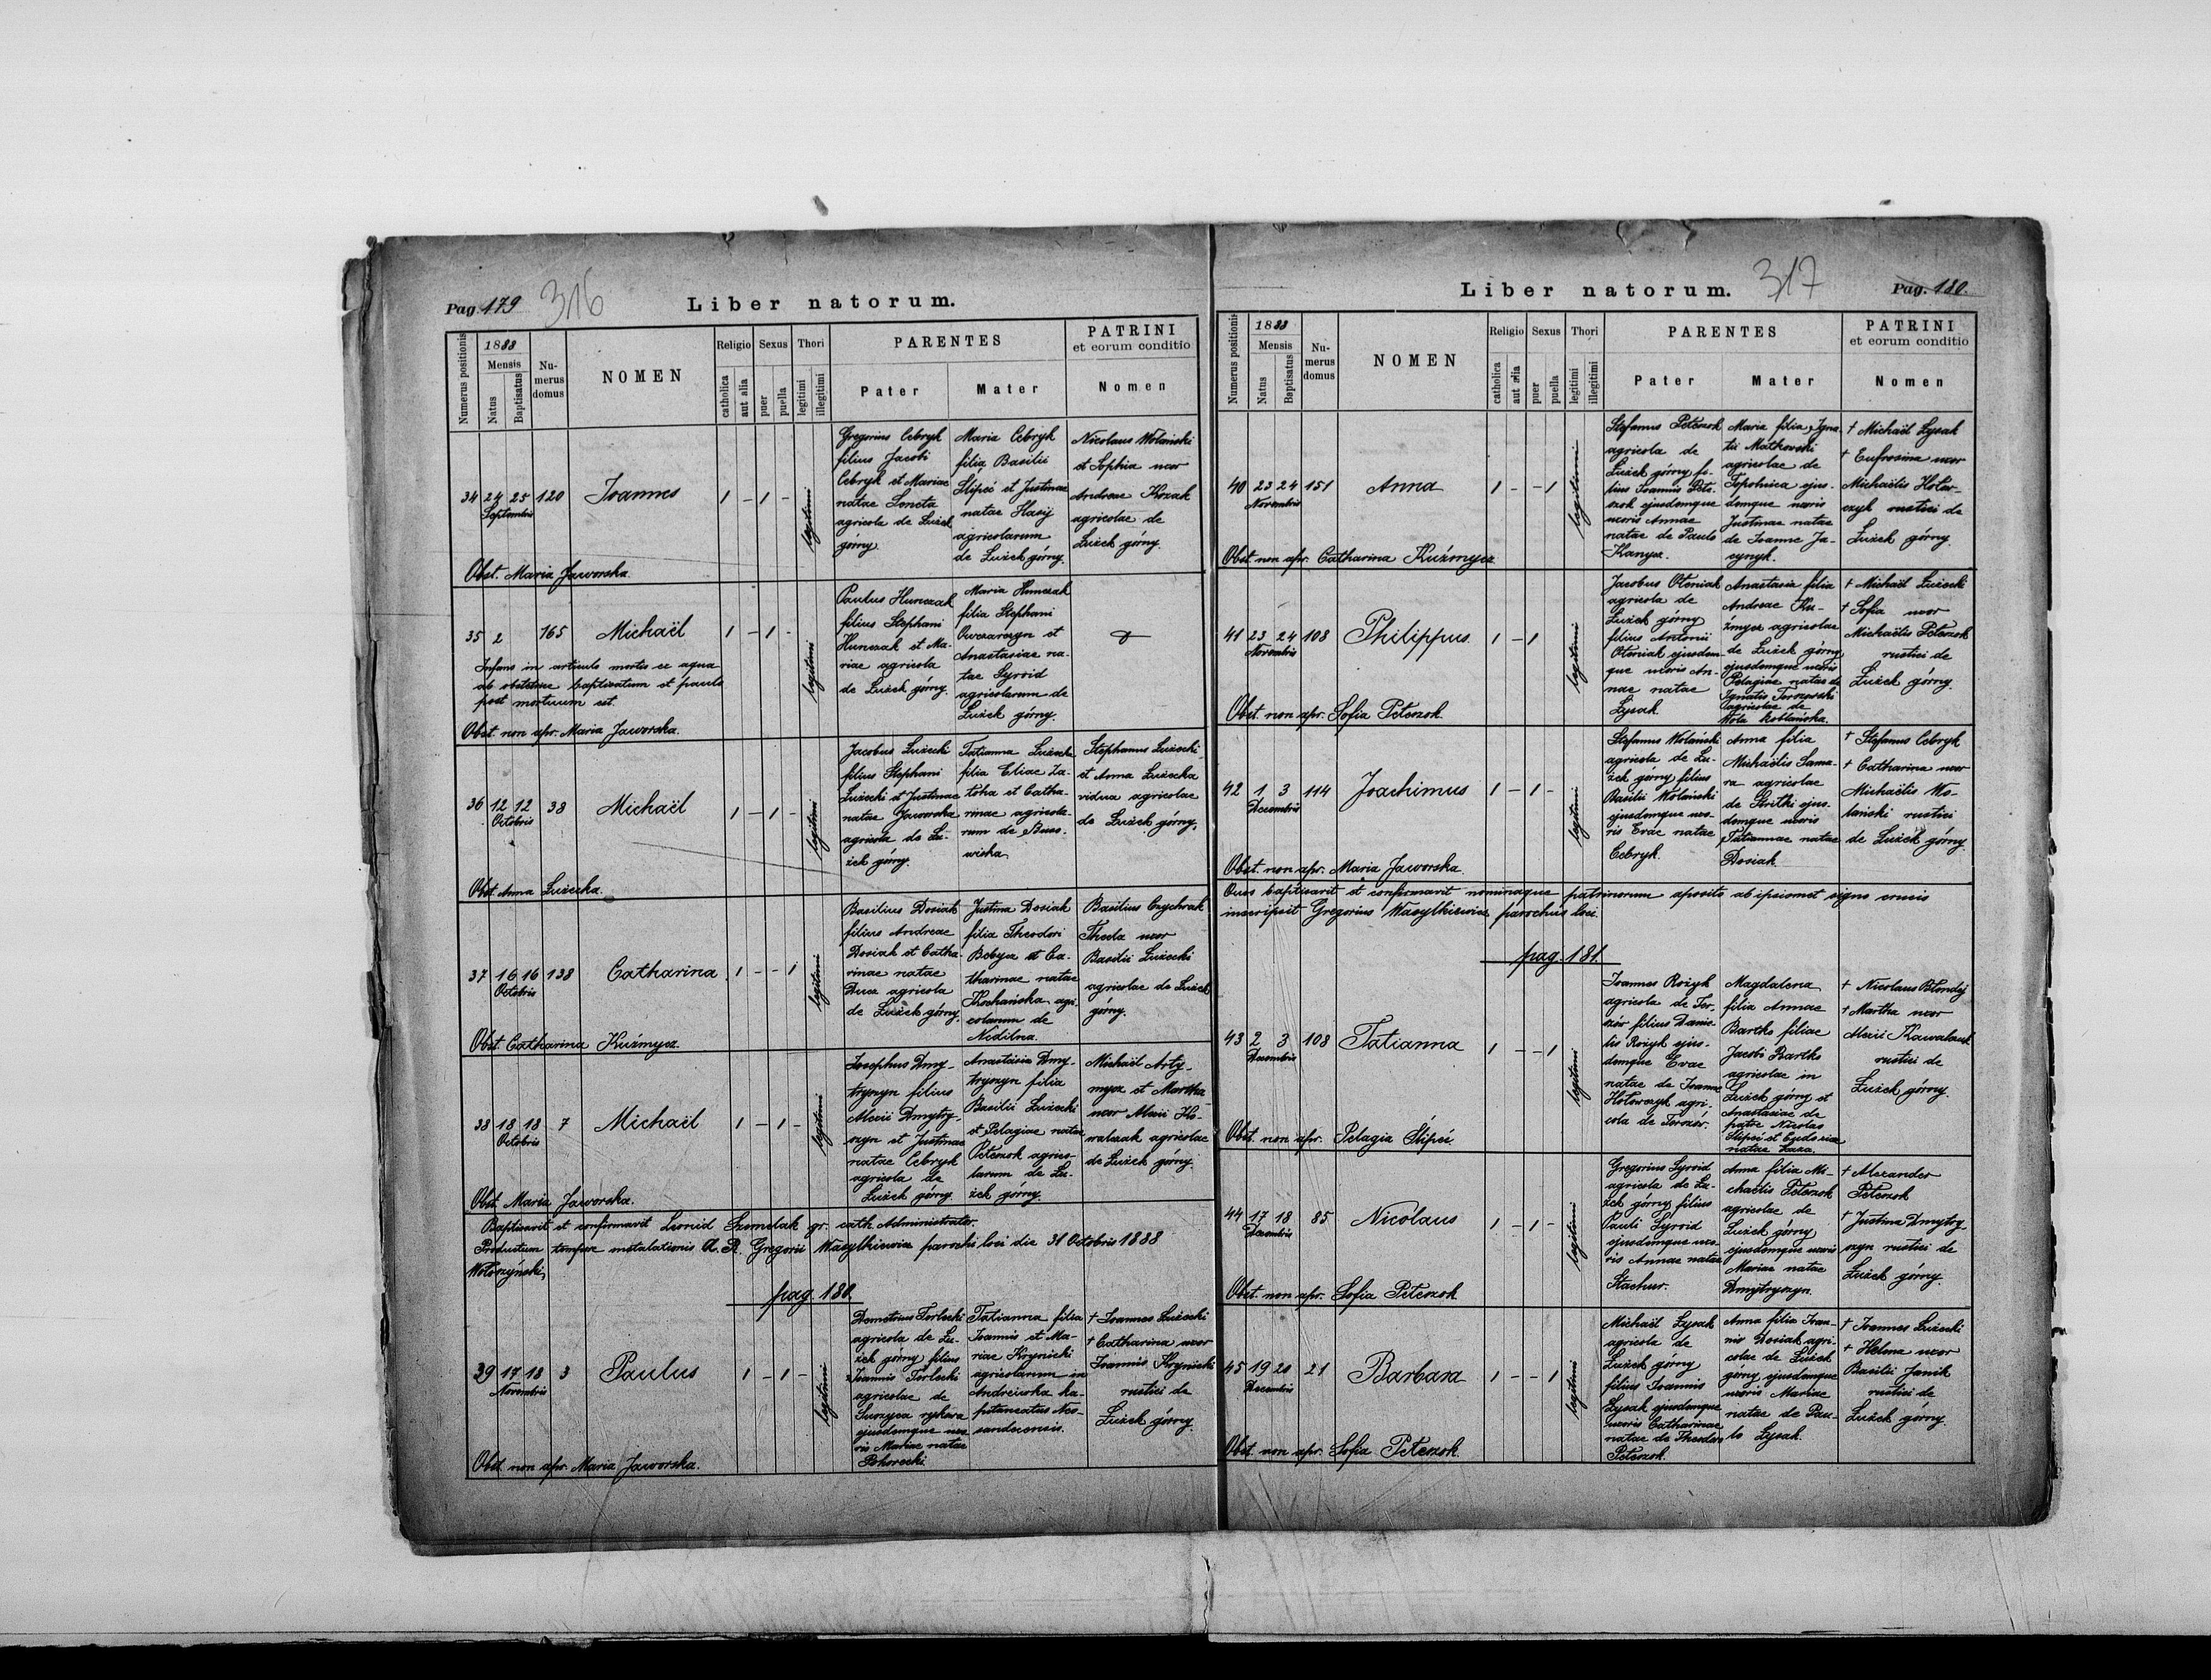 Pag. 179
316
Liber natorum.
Numerus positionis
1888
Mensis
Natus
Baptisatus
Nu-
merus
domus
NOMEN
Religio
catholica
aut alia
Sexus
puer
puella
Thori
legitimi
illegitimi
PARENTES
Pater
Mater
PATRINI
et eorum conditio
Nomen
34 24 25 120 Joannes 1 - 1 - legitimi
Septembris
Gregorius Cebryk
filius Jacobi
Cebryk et Mariae
natae Soneta
agricola de Lużek
górny.
Maria Cebryk
filia Basilii
Slipeć et Justinae
natae Hasij
agricolarum
de Lużek górny.
Nicolaus Wolański
et Sophia uxor
Andreae Kozak
agricolae de
Lużek górny.
Obst. Maria Jaworska.
35 2 165 Michaël 1 - 1 - legitimi
Infans in articulo mortis ex aqua
ab obstetrice baptisatum et paulo
post mortuum est.
Paulus Hunczak
filius Stephani
Hunczak et Ma-
riae agricola
de Lużek górny.
Maria Hunczak
filia Stephani
Owczarczyn et
Anastasiae na-
tae Syroid
agricolarum de
Lużek górny.
Obst. non apr. Maria Jaworska.
36 12 12 38 Michaël 1 - 1 - legitimi
Octobris
Jacobus Lużecki
filius Stephani
Lużecki et Justinae
natae Jaworska
agricola de Lu-
żek górny.
Tatianna Lużecka
filia Eliae Za-
toha et Catha-
rinae agricola-
rum de Buso-
wiska
Stephanus Lużecki
et Anna Lużecka
vidua agricolae
de Lużek górny.
Obst. Anna Lużecka.
37 16 16 138 Catharina 1 - - 1 legitimi
Octobris
Basilius Dosiak
filius Andreae
Dosiak et Catha-
rinae natae
Duca agricola
de Lużek górny.
Justina Dosiak
filia Theodori
Bobyca et Ca-
tharinae natae
Kochańska agri-
colarum de
Nedilna.
Basilius Czychrak
Theda uxor
Basilii Lużecki
agricolae de Lużek
górny.
Obst. Catharina Kuźmycz.
38 18 18 7 Michaël 1 - 1 - legitimi
Octobris
Josephus Dmy-
tryszyn filius
Alexii Dmytry-
szyn et Justinae
natae Cebryk
agricola de
Lużek górny.
Anastasia Dmy-
tryszyn filia
Basilii Lużecki
et Pelagiae natae
Peteszok agrico-
larum de Lu-
żek górny.
Michaël Arty-
mycz et Martha
uxor Alexii Ko-
walczak agricolae
de Lużek górny.
Obst. Maria Jaworska.
Baptisavit et confirmavit Leonid Szemelak gr. cath. Administrator.
Productum tempore installationis A. R. Gregorii Wasylkiewicz parochi loci die 31 Octobris 1888
Wołoszyński
pag. 180.
39 17 18 3 Paulus 1 - 1 - legitimi
Novembris
Demetrius Torlecki
agricola de Lu-
żek górny filius
Ioannis Torlecki
agricolae de
Suszyca rykowa
ejusdemque uxo-
ris Mariae natae
Pohorecki
Tatianna filia
Joannis et Ma-
riae Krynicki
agricolarum in
Andrciwka ka-
pitaneatus Neo-
sandecensis.
† Joannes Lużecki
† Catharina uxor
Joannis Krynicki
rustici de
Lużek górny.
Obst. non apr. Maria Jaworska.
Liber natorum.
317
Pag. 180.
Numerus positionis
1888
Mensis
Natus
Baptisatus
Nu-
merus
domus
NOMEN
Religio
catholica
aut alia
Sexus
puer
puella
Thori
legitimi
illegitimi
PARENTES
Pater
Mater
PATRINI
et eorum conditio
Nomen
40 23 24 151 Anna 1 - - 1 legitimi
Novembris
Stefanus Peteszok
agricola de
Lużek górny fi-
lius Joannis Pete-
szok ejusdemque
uxoris Annae
natae de Paulo
Kanycz.
Maria filia Igna-
tii Matkowski
agricolae de
Topolnica ejus-
demque uxoris
Justinae natae
de Joanne Ja-
cynyk.
† Michaël Lysak
† Eufrosina uxor
Michaëlis Holow-
czyk rustici de
Lużek górny.
Obst. non apr. Catharina Kuźmycz
41 23 24 108 Philippus 1 - 1 legitimi
Novembris
Jacobus Oteniak
agricola de
Lużek górny
filius Antonii
Oteniak ejusdem-
que uxoris An-
nae natae
Lysak.
Anastasia filia
Andreae Ku-
źmycz agricolae
de Lużek górny
ejusdemque uxoris
Pelagiae natae de
Ignatio Torczewski
agricolae de
Wola koblańska.
† Michaël Lużecki
† Sofia uxor
Michaëlis Peteszok
rustici de
Lużek górny.
Obst. non apr. Sofia Peteszok.
42 1 3 114 Joachimus 1 - 1 - legitimi
Decembris
Stefanus Wolański
agricola de Lu-
żek górny filius
Basilii Wolański
ejusdemque uxo-
ris Evae natae
Cebryk.
Anna filia
Michaëlis Sama-
ra agricolae
de Stritki ejus-
demque uxoris
Tatiannae natae
Dosiak
† Stefanus Cebryk
† Catharina uxor
Michaëlis Wo-
lański rustici
de Lużek górny.
Obst. non apr. Maria Jaworska.
Quos baptisavit et confirmavit nominaque patrinorum aposito ab ipsismet signo crucis
inscripsit Gregorius Wasylkiewicz parochus loci.
pag. 181.
43 2 3 108 Tatianna 1 - - 1 legitimi
Decembris
Joannes Rożyk
agricola de Tor-
szów filius Danie-
lis Rożyk ejus-
demque Evae
natae de Joanne
Holowczyk agri-
cola de Torszów.
Magdalena
filia Annae
Bartko filiae
Jacobi Bartko
agricolae in
Lużek górny et
Anastasiae de
patre Nicolao
Slipeć et Eudoxia
natae Zaza.
† Nicolaus Blondij
† Martha uxor
Alexii Kawalczak
rustici de
Lużek górny.
Obst. non apr. Pelagia Slipeć
44 17 18 85 Nicolaus 1 - 1 - legitimi
Decembris
Gregorius Syroid
agricola de Lu-
żek górny filius
Pauli Syroid
ejusdemque uxo-
ris Annae natae
Stachur.
Anna filia Mi-
chaëlis Peteszok
agricolae de
Lużek górny
ejusdemque uxoris
Mariae natae
Dmytryszyn.
† Alexander
Peteszok
† Justina Dmytry-
szyn rustici de
Lużek górny.
Obst. non apr. Sofia Peteszok
45 19 20 21 Barbara 1 - - 1 legitimi
Decembris
Michaël Lysak
agricola de
Lużek górny
filius Joannis
Lysak ejusdemque
uxoris Catharinae
natae de Theodoro
Peteszok.
Anna filia Joan-
nis Dosiak agri-
colae de Lużek
górny ejusdemque
uxoris Mariae
natae de Pau-
lo Lysak.
† Joannes Lużecki
† Helena uxor
Basilii Janik
rustici de
Lużek górny.
Obst. non apr. Sofia Peteszok.